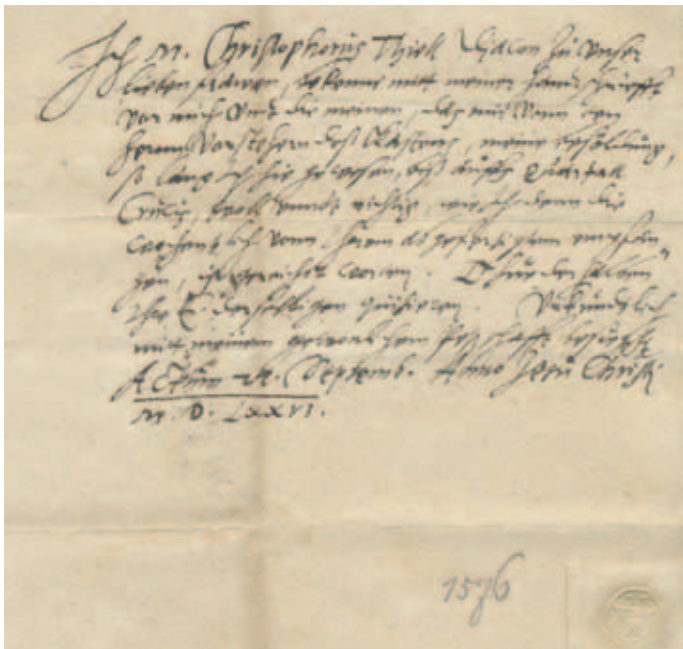 Ich M. Christophorus Thiell Diacon zu unser
lieben frawen, bekenne mitt meiner handschrifft
vor mich und die meinen, das mir von den
herren Vorstehern deß Kastens, meine besoldung,
so lang ich hie gewesen, biß auffs Quartall
Crucis, voll und richtig, wie ich denn die
wochentlich vonn ihnen empfan-
gen, ist gereichet worden. Thue der halben
Ihre E. derselbigen quittiren. Uhrkundlich
mit meinem gewonlichem Petzschafft
Actum Septemb. Anno Jesu Christi
M. D. LXXVI.
1576